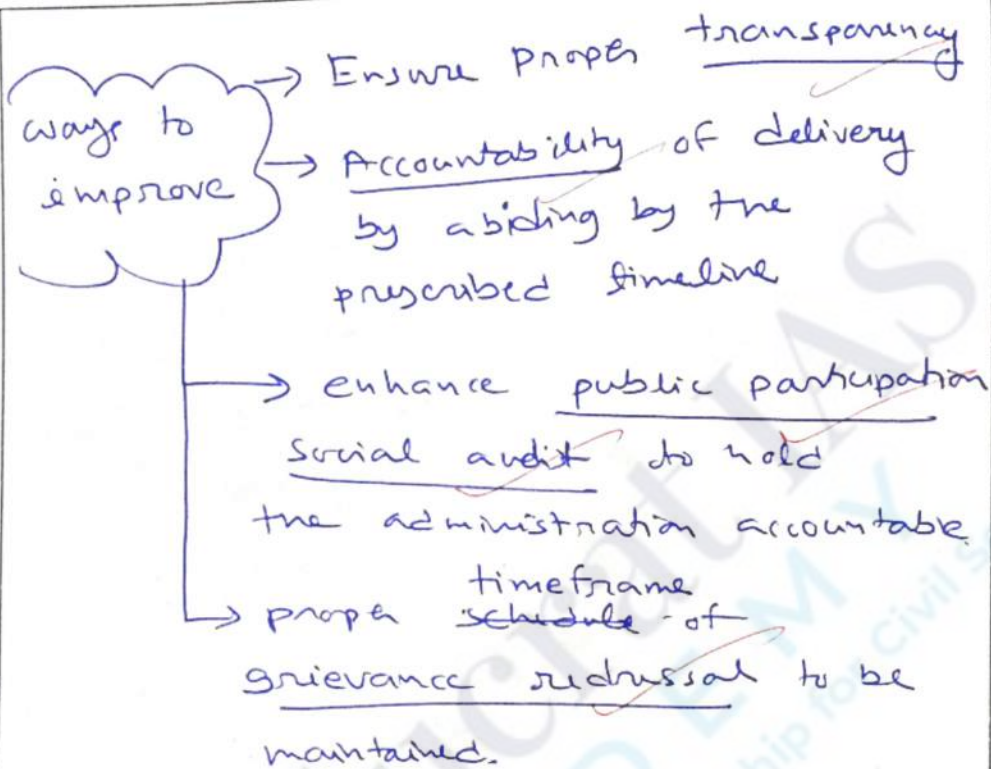 ways to
improve
→ Ensure proper transparency
→ Accountability of delivery
by abiding by the
prescribed timeline
→ enhance public participation
social audit to hold
the administration accountable.
timeframe
→ proper schedule of
grievance redressal to be
maintained.